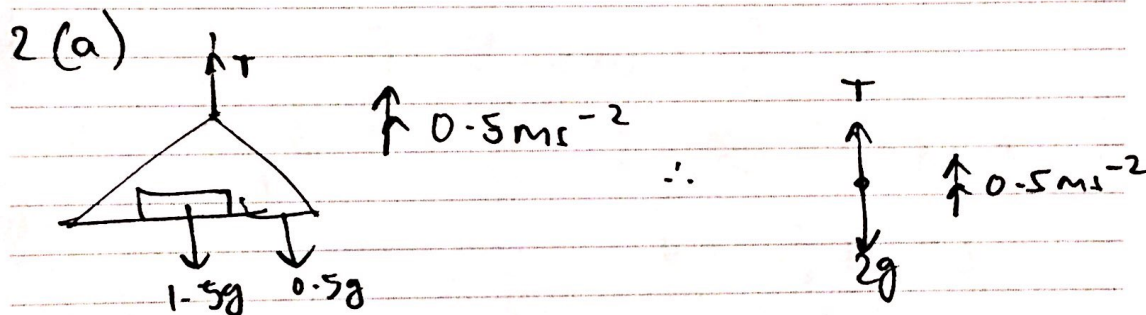 2 (a)
T
0.5 ms⁻²
1.5g 0.5g
∴
T
0.5 ms⁻²
2g